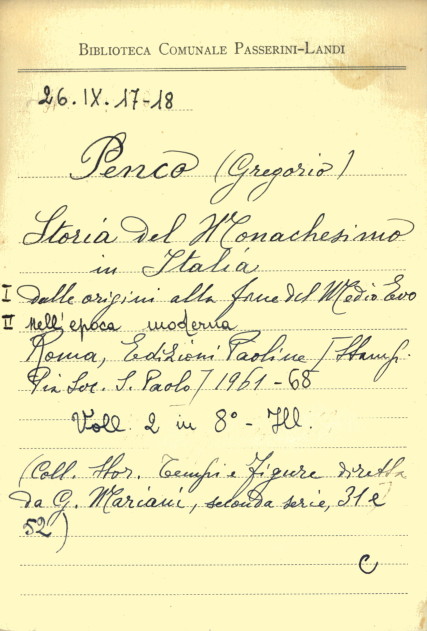 BIBLIOTECA COMUNALE PASSERINI-LANDI
26.IX.17-18
Penco (Gregorio)
Storia del Monachesimo
in Italia
I dalle origini alla fine del Medio Evo
II nell'epoca moderna
Roma, Edizioni Paoline [Stamp.
Pia Soc. S. Paolo] 1961-68
Voll. 2 in 8° - Ill.
(Coll. Stor. Tempi e Figure diretta
da G. Mariani, seconda serie, 31 e
52)
C